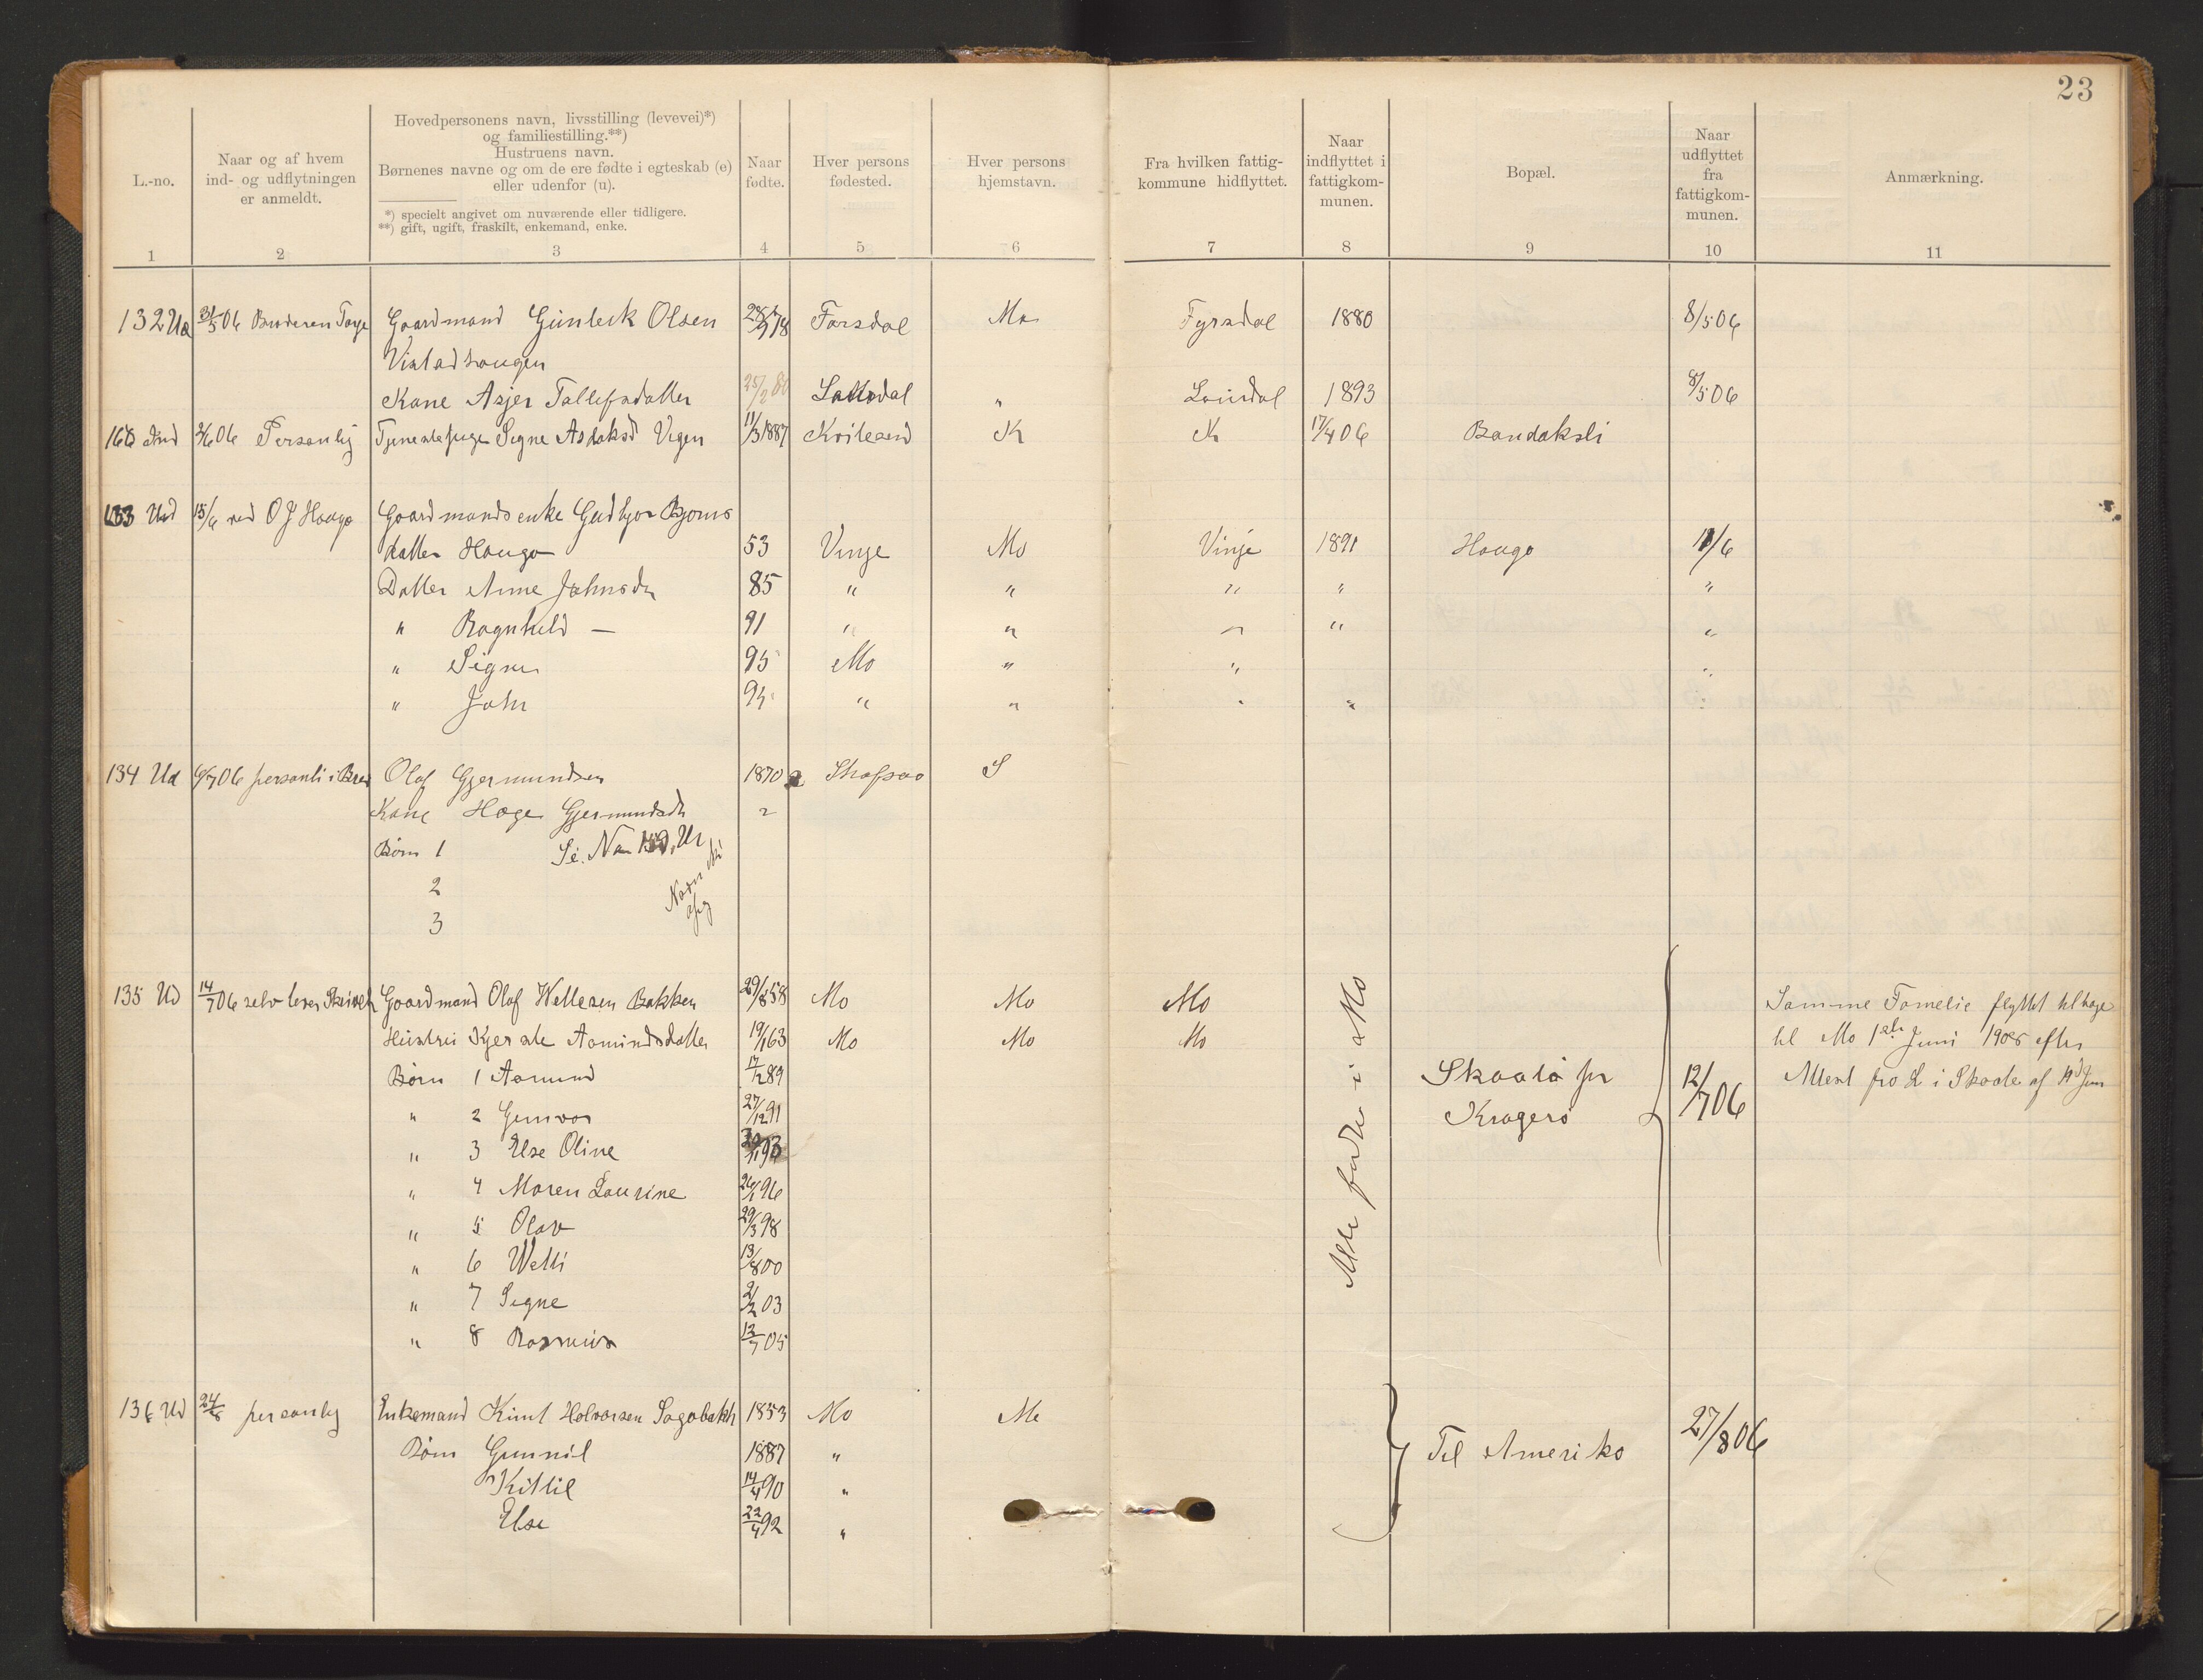 23
L.-no.
Naar og af hvem
ind- og udflytningen
er anmeldt.
Hovedpersonens navn, livsstilling (levevei)*)
og familiestilling.**)
Hustruens navn.
Børnenes navne og om de ere fødte i egteskab (e)
eller udenfor (u).
*) specielt angivet om nuværende eller tidligere.
**) gift, ugift, fraskilt, enkemand, enke.
Naar
fødte.
Hver persons
fødested.
Hver persons
hjemstavn.
Fra hvilken fattig-
kommune hidflyttet.
Naar
indflyttet i
fattigkom-
munen.
Bopæl.
Naar
udflyttet
fra
fattigkom-
munen.
Anmærkning.
1 2 3 4 5 6 7 8 9 10 11
132 Ud 31/5 06 Broderen Torge Gaardmand Gunleik Olsen 78 Mo Fyrsdal 1880 8/5 06
Kone Asjer Tollefsdatter 25/2 80 1893 8/5 06
Ind 2/6 06 Personlig Tjenestepige Signe Aslaksd Vegen 11/3 1887 Kvitesend K K 17/4 06 Bandaksli
133 Ud 15/6 ved O J Haugo Gaardmandsenke Gudbjor Bjorns
datter Haugo 53 Vinje Mo Vinje 1891 Haugo /6
Datter Anne Johnsdr 85 " " " " "
" Ragnhild — 91 " " " " "
" Signe 95 Mo " " "
" John 95 " " " " "
134 Ud 6/7 06 personli i Brev Olaf Gjermundsen 1870 Skafsaa S
Kone Hæge Gjermundsdr
Børn 1 Se. No Ur
2
3
135 Ud 14/7 06 selv Gaardmand Olaf Wetlesen Bakken 29/8 58 Mo Mo Mo
Hustru Kjerste Aamundsdatter 19/1 63 Mo Mo Mo
Børn 1 Aamund 89
" 2 Gunvor 27/12 91
" 3 Else Oline 93
" 4 Maren Laurine 26/1 96
" 5 Olav 29/3 98
" 6 Wetli 13/8 00
" 7 Signe 2/2 03
" 8 Rasmus 12/7 05
Alle fødte i Mo
Skaatø pr
Kragerø
12/7 06
Samme Famelie flyttet tilbage
til Mo 1ste Juni 1908 efter
Attest fra L i Skaate af
136 Ud 24/8 personlig Enkemand Knut Halvorsen Sagabakk 1853 Mo Mo
Børn Gunnil 1887 "
Kittil 14/4 90 "
Else 22/4 92 "
Til Amerika 27/8 06